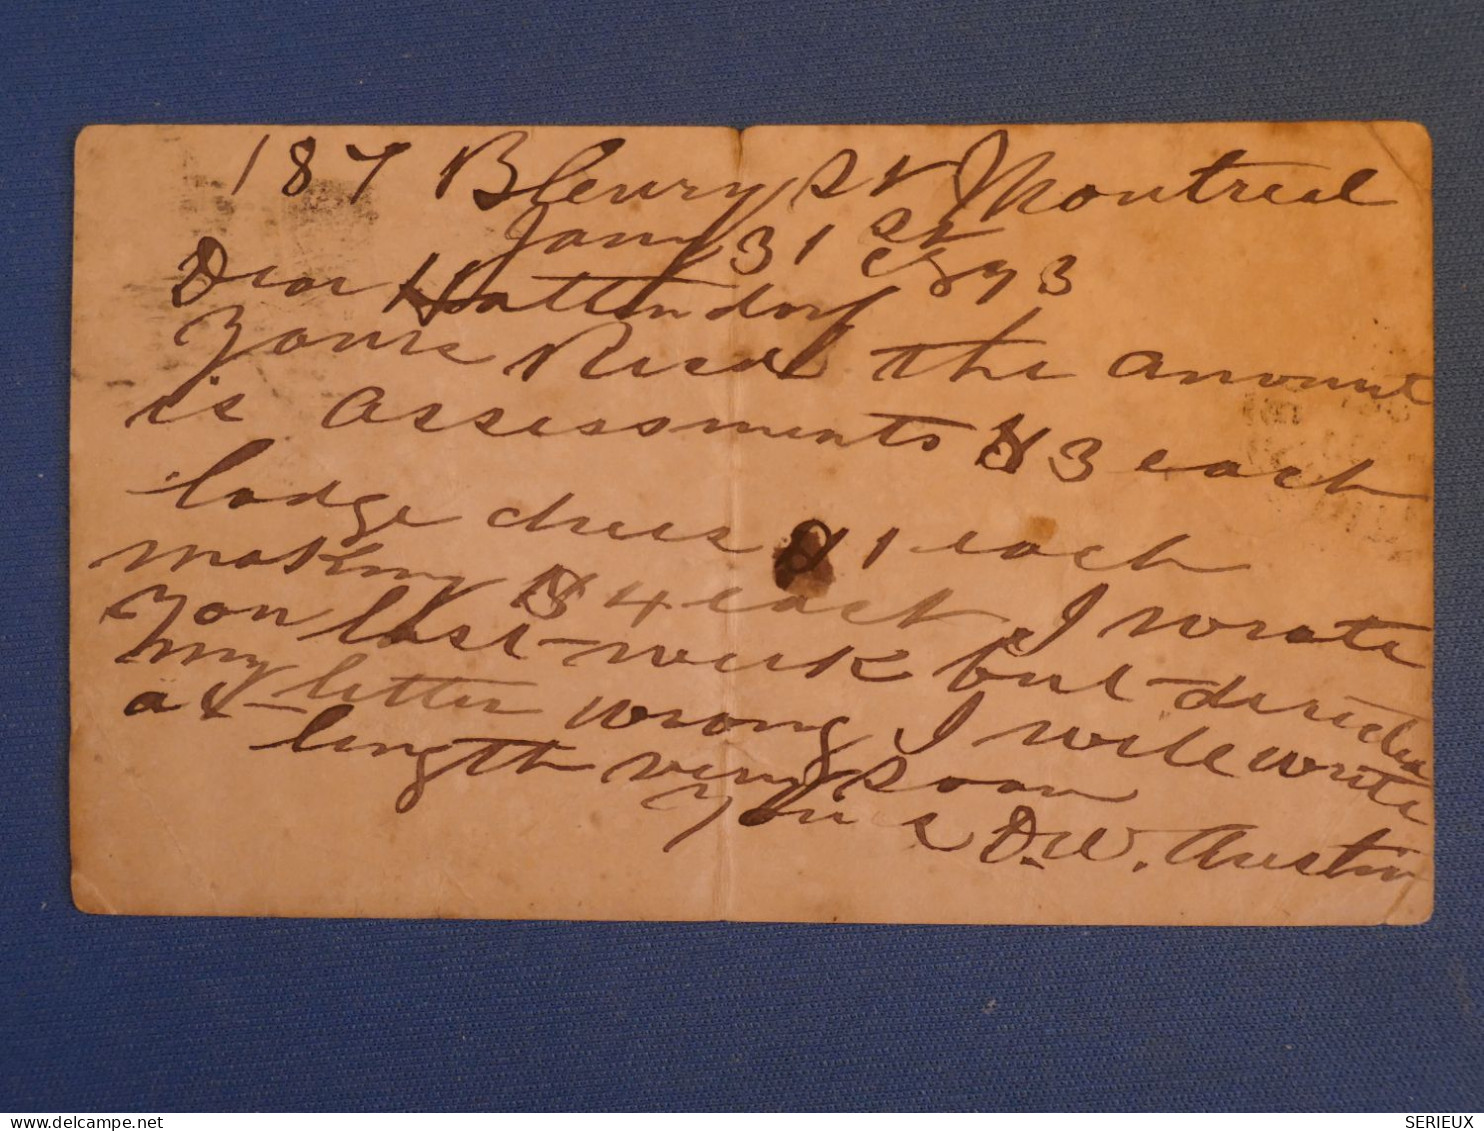 187 Bleury St Montreal
Jany 31st 1893
Dear Hattendorf
Yours Recd the amount
is assessments $3 each
lodge dues $1 each
making $4 each I wrote
you last week but directed
my letter wrong I will write
at length very soon
Yours D.W. Austin
delcampe.net
SERIEUX